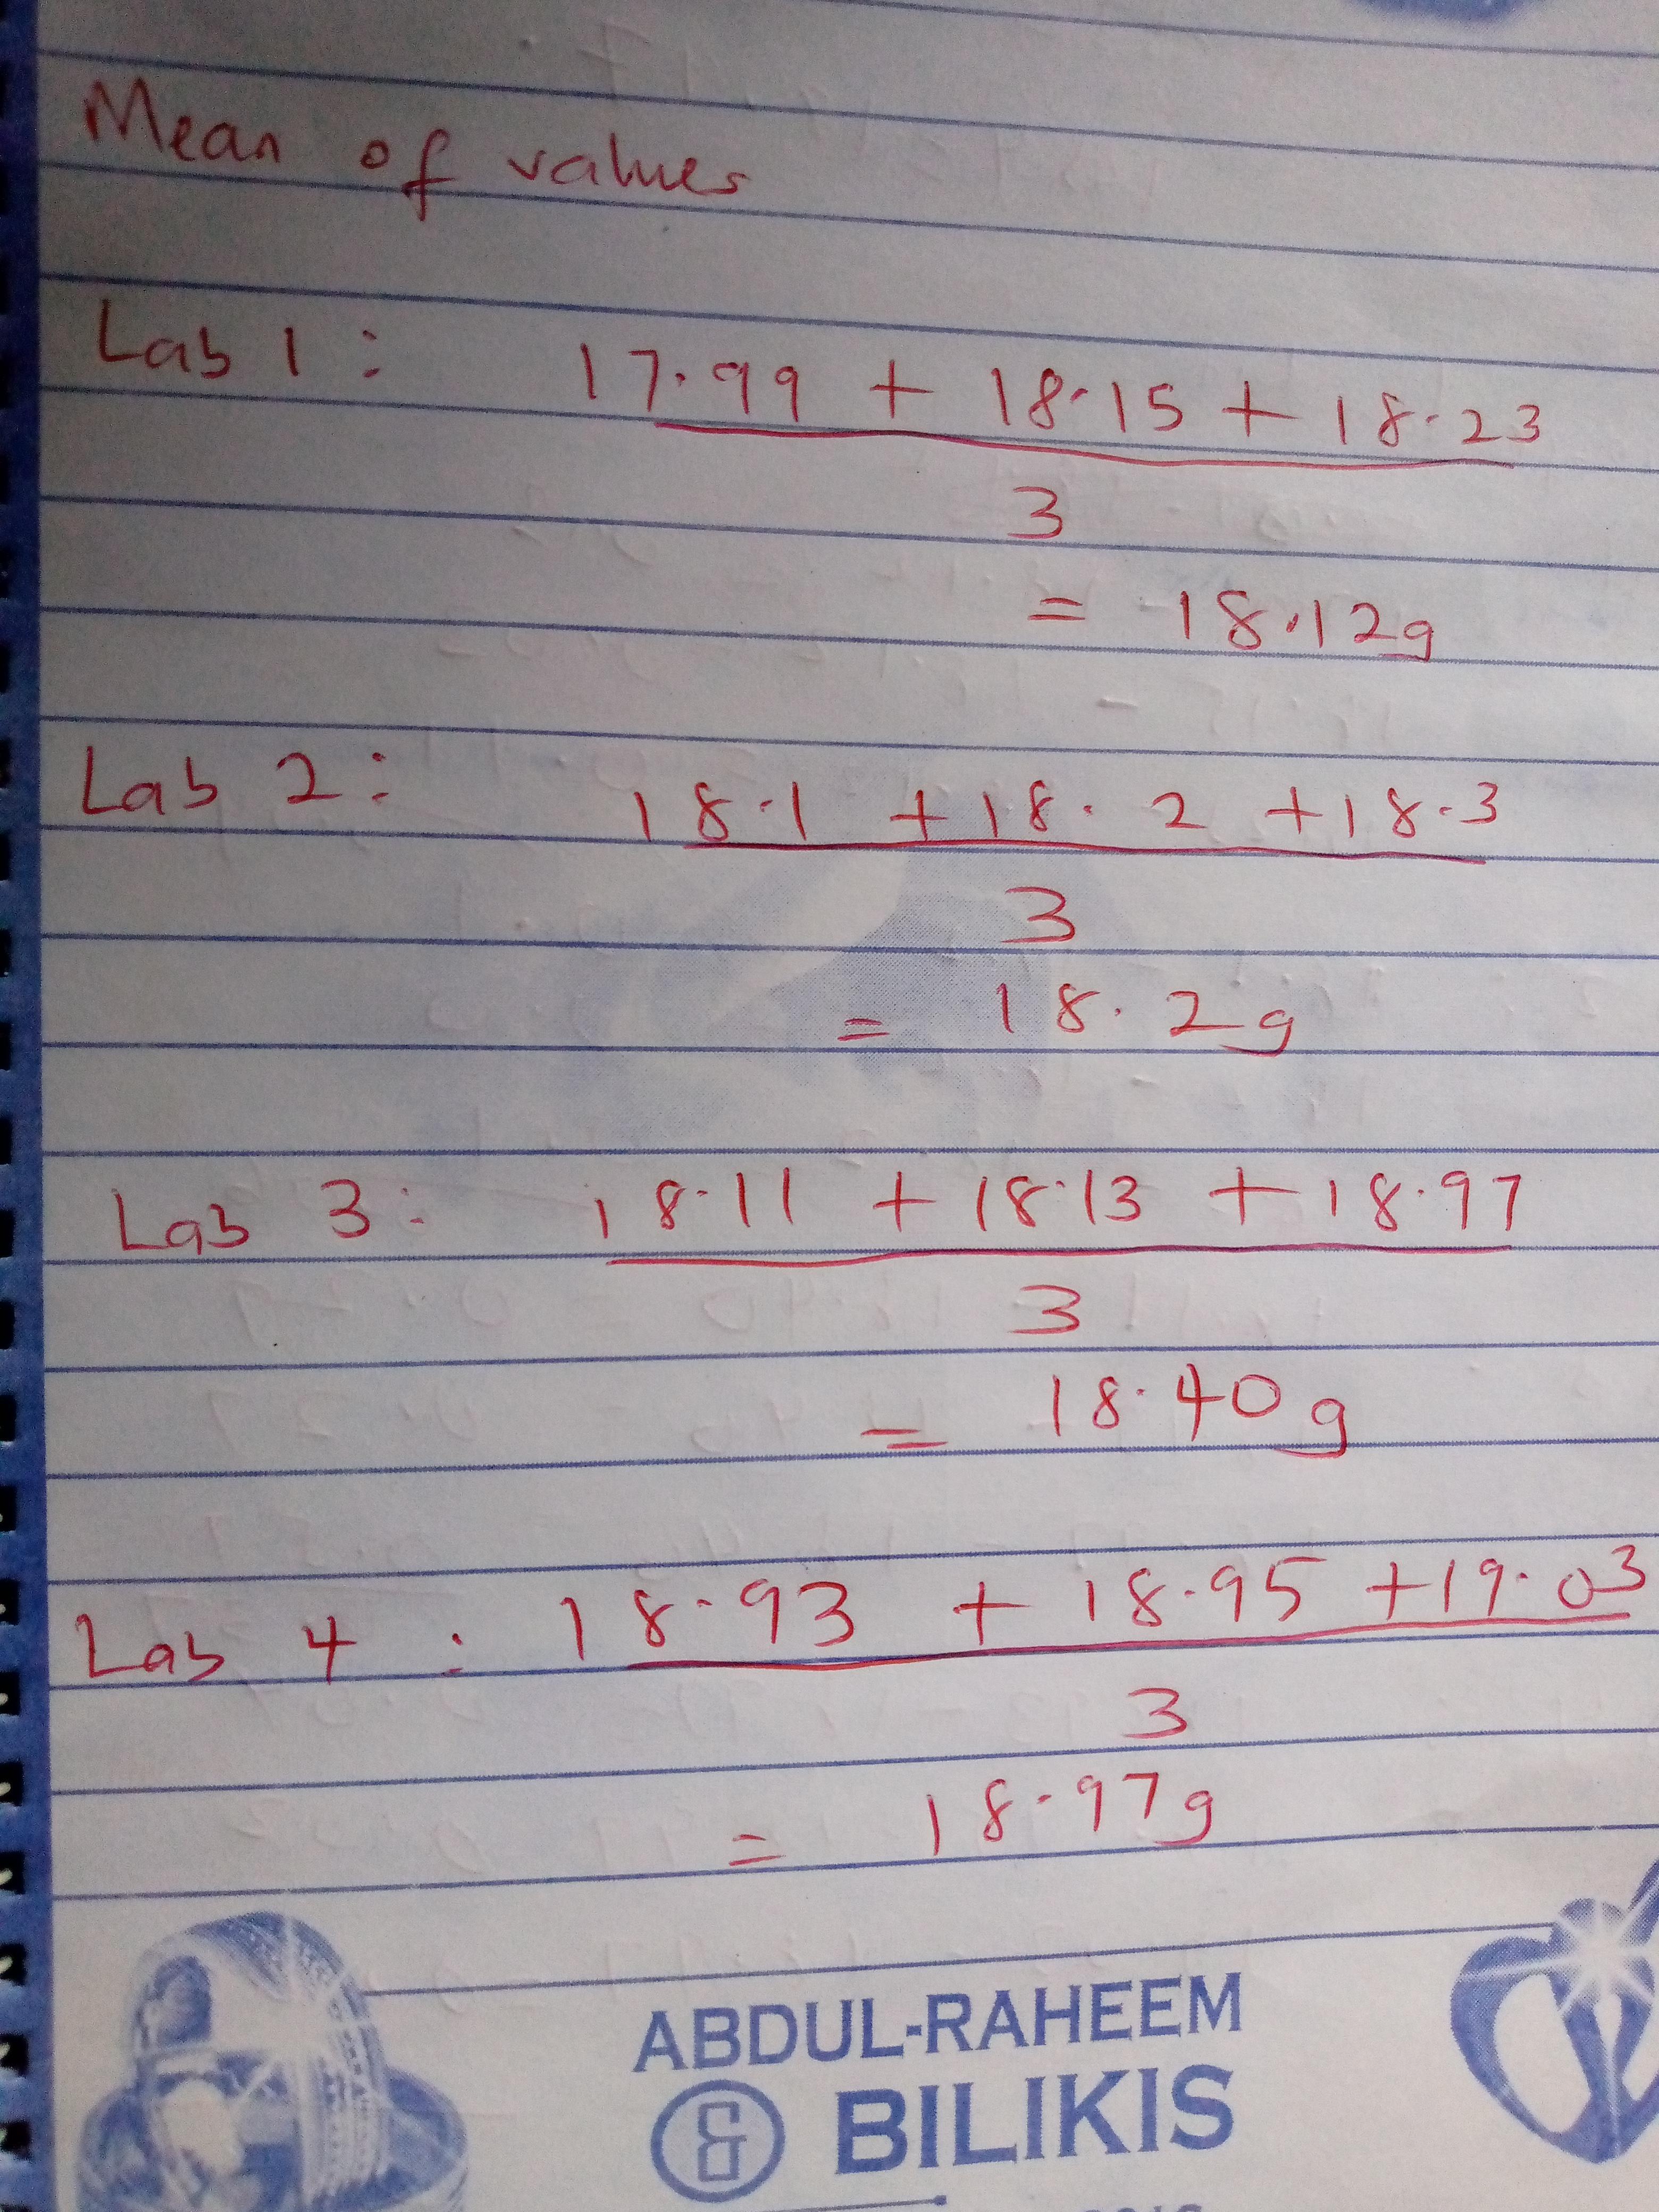 Mean of values
Lab 1 : 17.99 + 18.15 + 18.23
3
= 18.12g
Lab 2 : 18.1 + 18.2 + 18.3
3
= 18.2g
Lab 3 : 18.11 + 18.13 + 18.97
3
= 18.40g
Lab 4 : 18.93 + 18.95 + 19.03
3
= 18.97g
ABDUL-RAHEEM
& BILIKIS